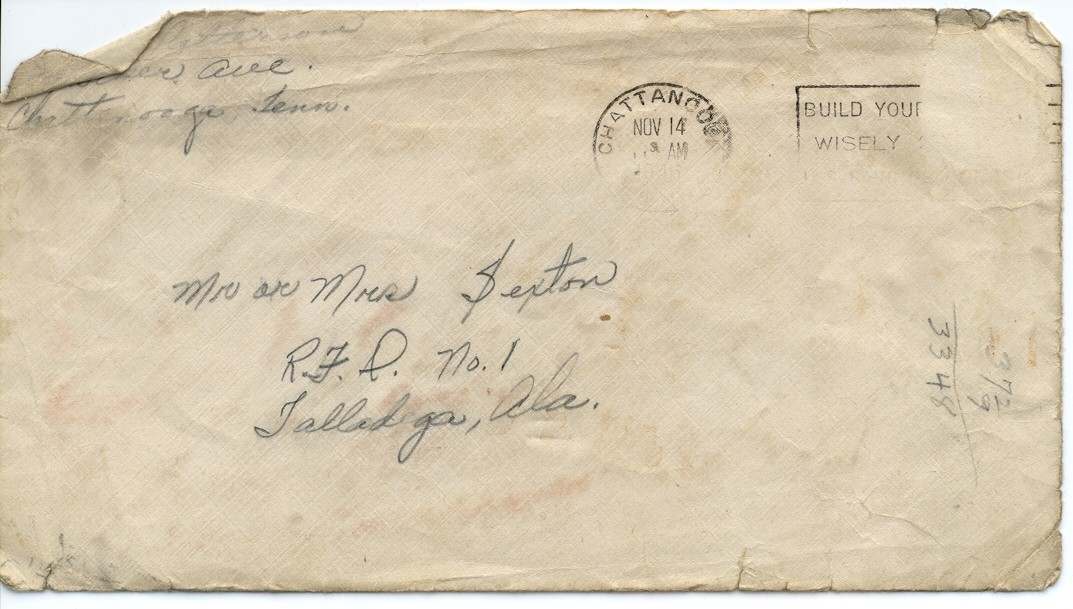 Ave.
Chattanooga, Tenn.
CHATTANOOG
NOV 14
AM
BUILD YOUR
WISELY
Mr or Mrs Sexton
R.F.D. No. 1
Talladega, Ala.
3348